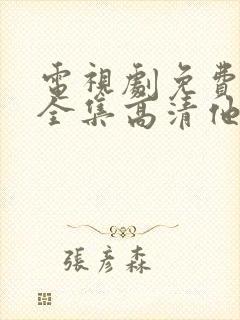 電視劇免費
全集高清他
張彥森